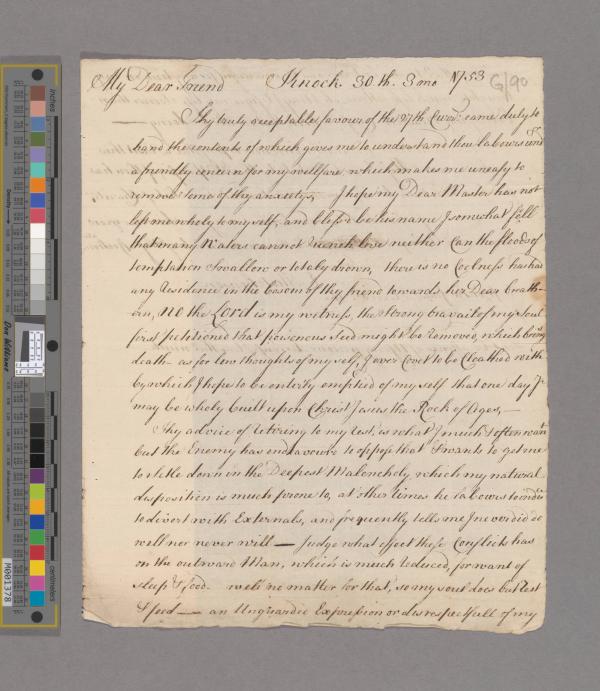 My Dear Friend Knock. 30th. 3 mo 1753 G/90
Thy truly acceptable favour of the 27th Curr.t came duly to
hand the contents of which gives me to understand thou labours und.r
a friendly concern for my wellfare, which makes me uneasy to
remove some of thy anxietys, I hope my Dear Master has not
left me wholy to my self, and Bless'd be his name I somewhat feel
that many Waters cannot quench love neither can the floods of
temptation Swallow or totaly drown, there is no Coolness has had
any residence in the bosom of thy friend towards her Dear breath-
en, no the Lord is my witness, the strong travail of my Soul
first petitioned that poisonous seed might be removed, which bring
death as for low thoughts of myself, I ever Covet to be Cloathed with
by which I hope to be entirely emptied of my self that one day I
may be wholy built upon Christ Jesus the Rock of Ages,—
Thy advice of retiring to my rest, is what I much & often want
but the Enemy has endavoured to oppose that & wants to get me
to settle down in the Deepest Malencholy, which my natural
disposition is much prone to, at other times he labours to
to divert with Externals, and frequently tells me I never did do
well nor never will — Judge what effect these Conflicts has
on the outward Man, which is much reduced, for want of
sleep & food. well no matter for that, so my soul does but rest
& feed — an Unguarded Expression or disrespectfull of my
inches
centimetres
Don Williams
M001378